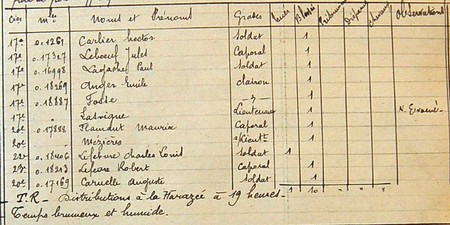 Cies Mles Noms et Prénoms Grades Tués Blessés Prisonniers Disparus chevaux Observations
17e 0.1269 Carlier hector Soldat 1
17e 0.17317 Leboeuf Jules Caporal 1
17e 0.16998 Lagache Paul Soldat 1
17e 0.18269 Anger Emile clairon 1
17e 0.18887 Fosse 1
17e Lavigne Lieutenant 1
20e 0.17888 Flandut Maurice Caporal 1
20e Mézières 1
22e 0.18406 Lefebvre Charles Louis Soldat 1
22e 0.18203 Lefevre Robert Caporal 1
20e 0.17169 Caruelle Auguste Soldat 1
1 10
T.R - Distributions à la Harazée à 19 heures-
Temps brumeux et humide.